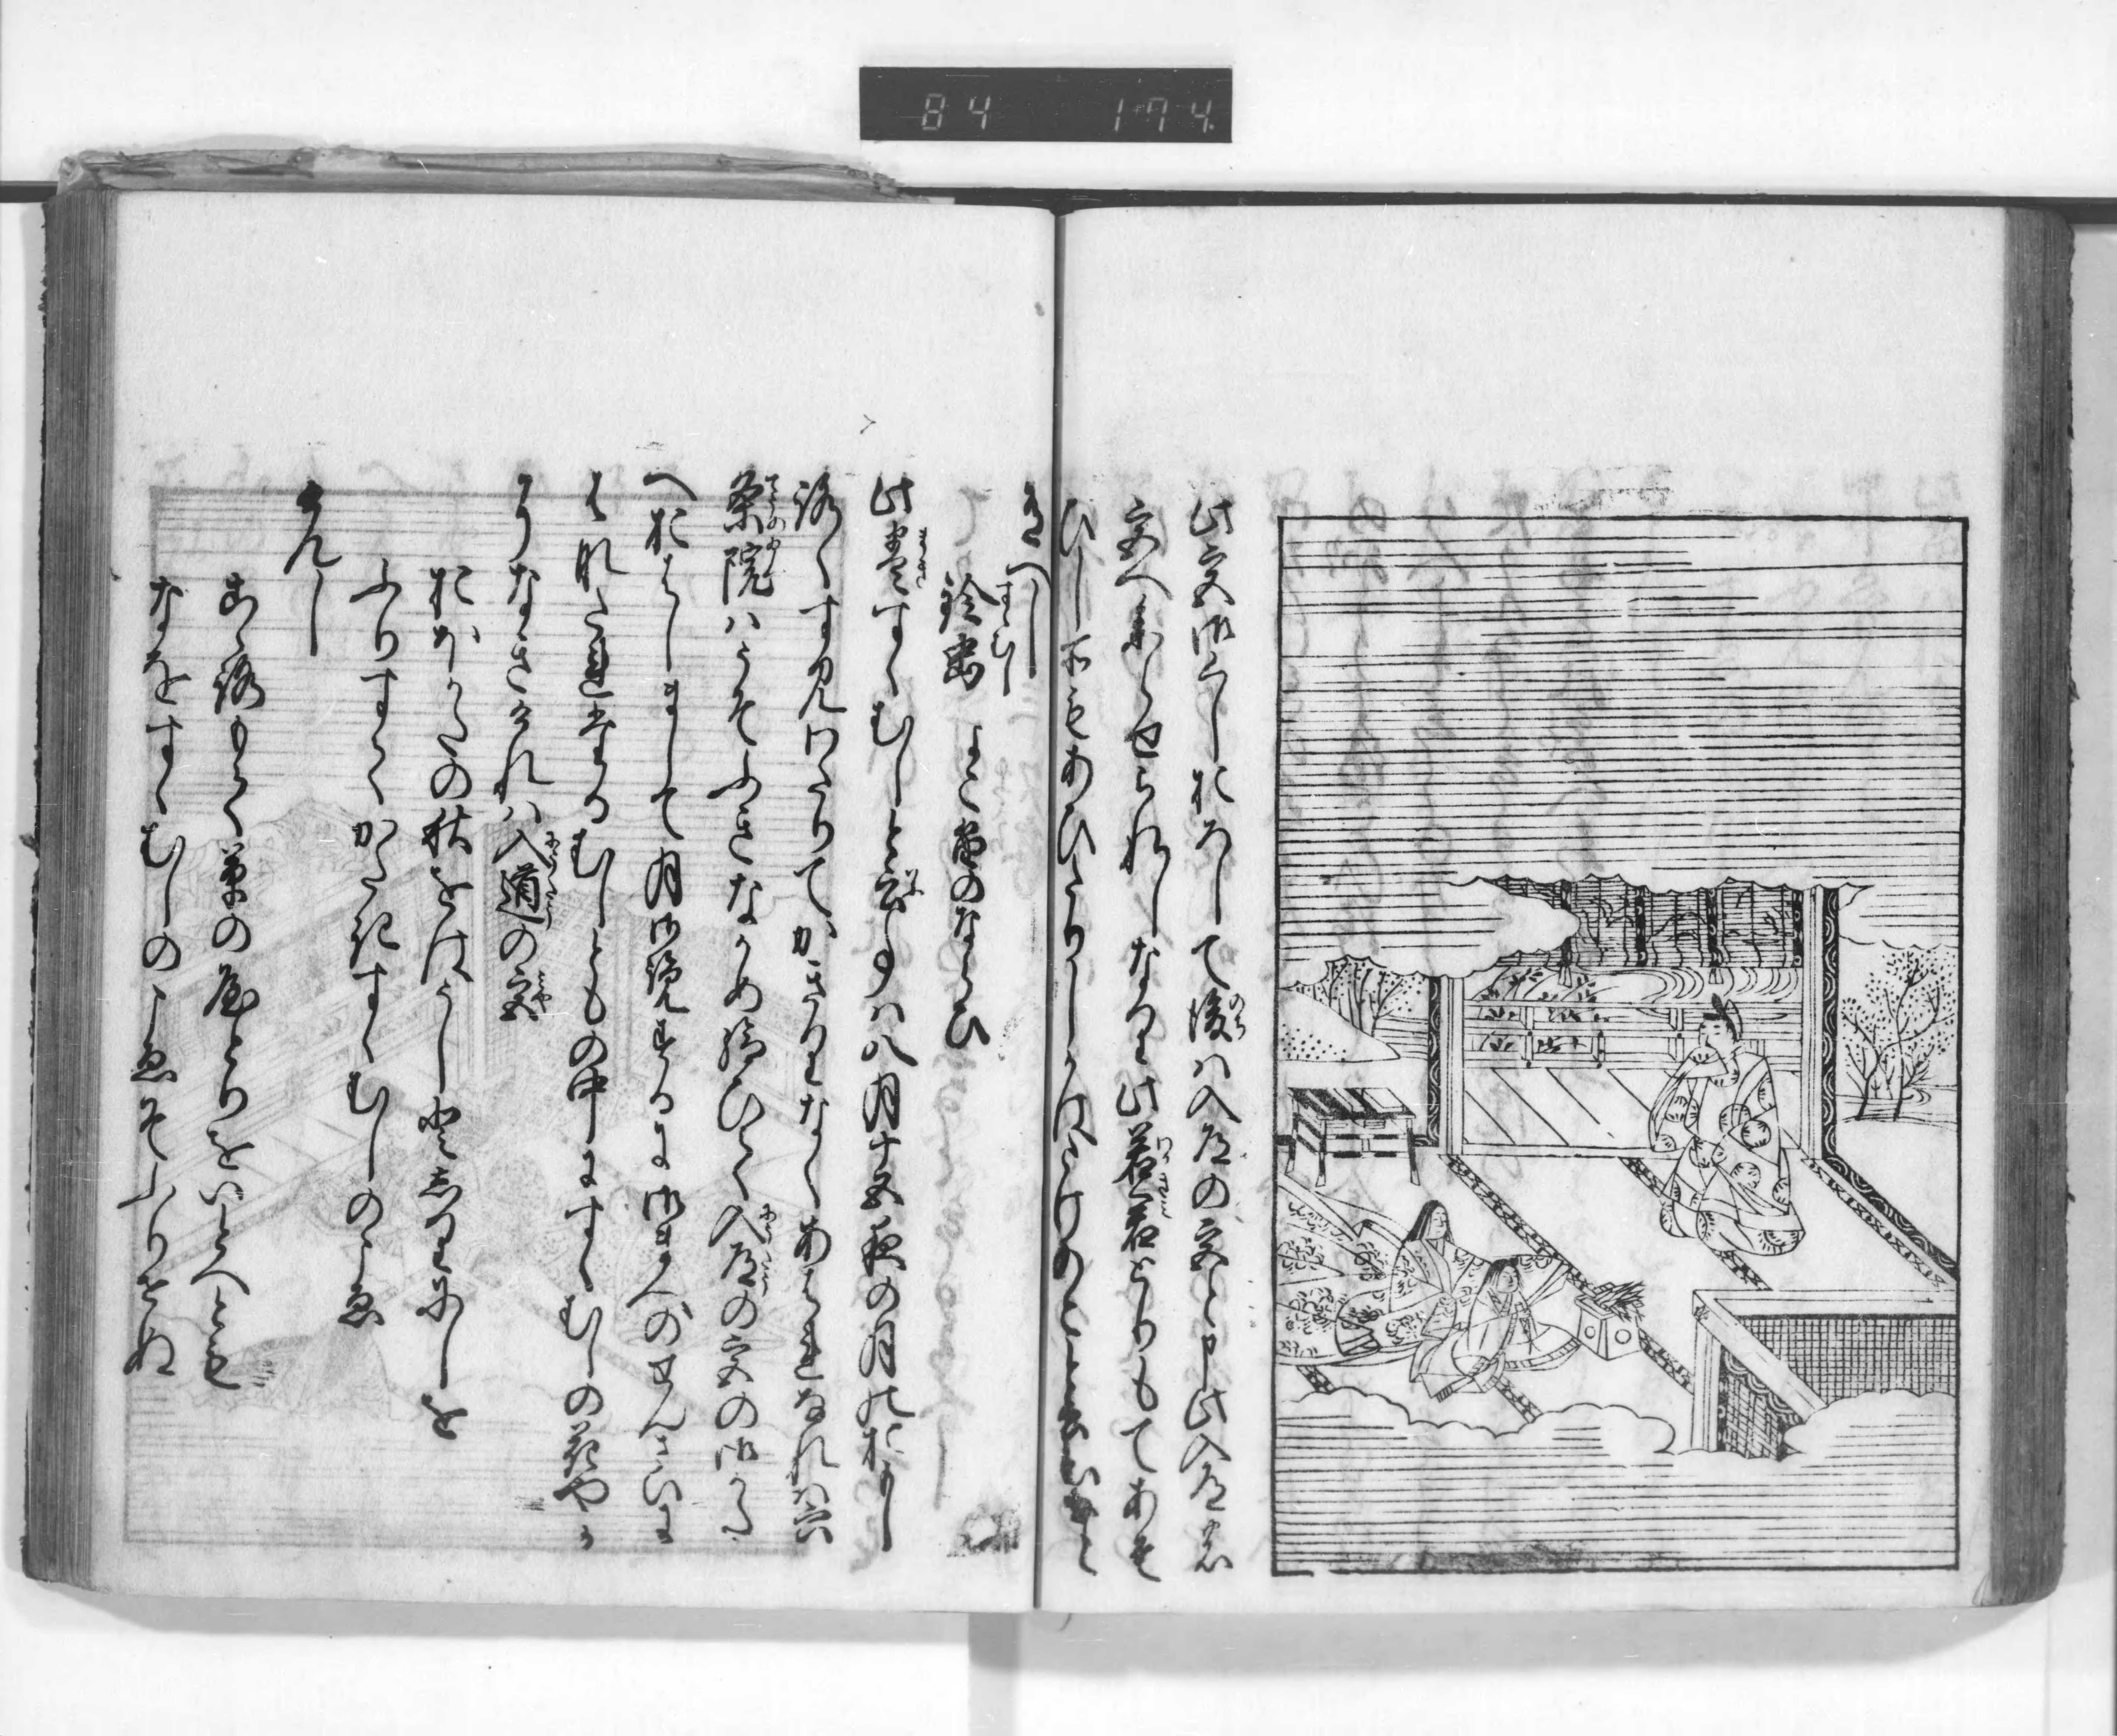 84 174
此宮御くしおろして後は入道の宮と申此入道の
宮へまいらせられしなり此若君とりもてあそ
ひし
きへし
鈴虫 よこ笛のならひ
すゝむし
此巻すゝむしと云事は八月十五夜の月のおもし
ろくすみわたりてかきりなくあはれなれは六
条院はうそふきなかめ給ひて入道の宮の御かた
へおはしまして月御覧するに御まへのせんさいに
はなたれたるむしともの中にすゝむしの花やか
うなきけれは入道の宮
おほかたの秋をはうしとしりにしを
ふりすてかたきすゝむしのこゑ
けんし
こゝろもて草の屋とりをいとへとも
なをすゝむしのこゑそふりせぬ